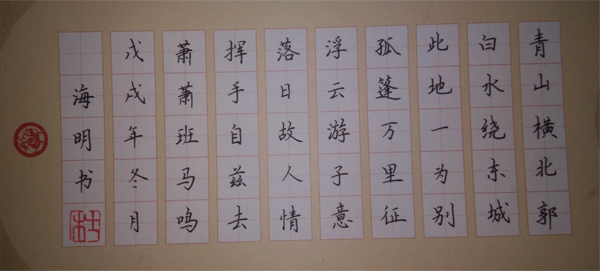 青山横北郭
白水绕东城
此地一为别
孤蓬万里征
浮云游子意
落日故人情
挥手自兹去
萧萧班马鸣
戊戌年冬月
海明书
杜